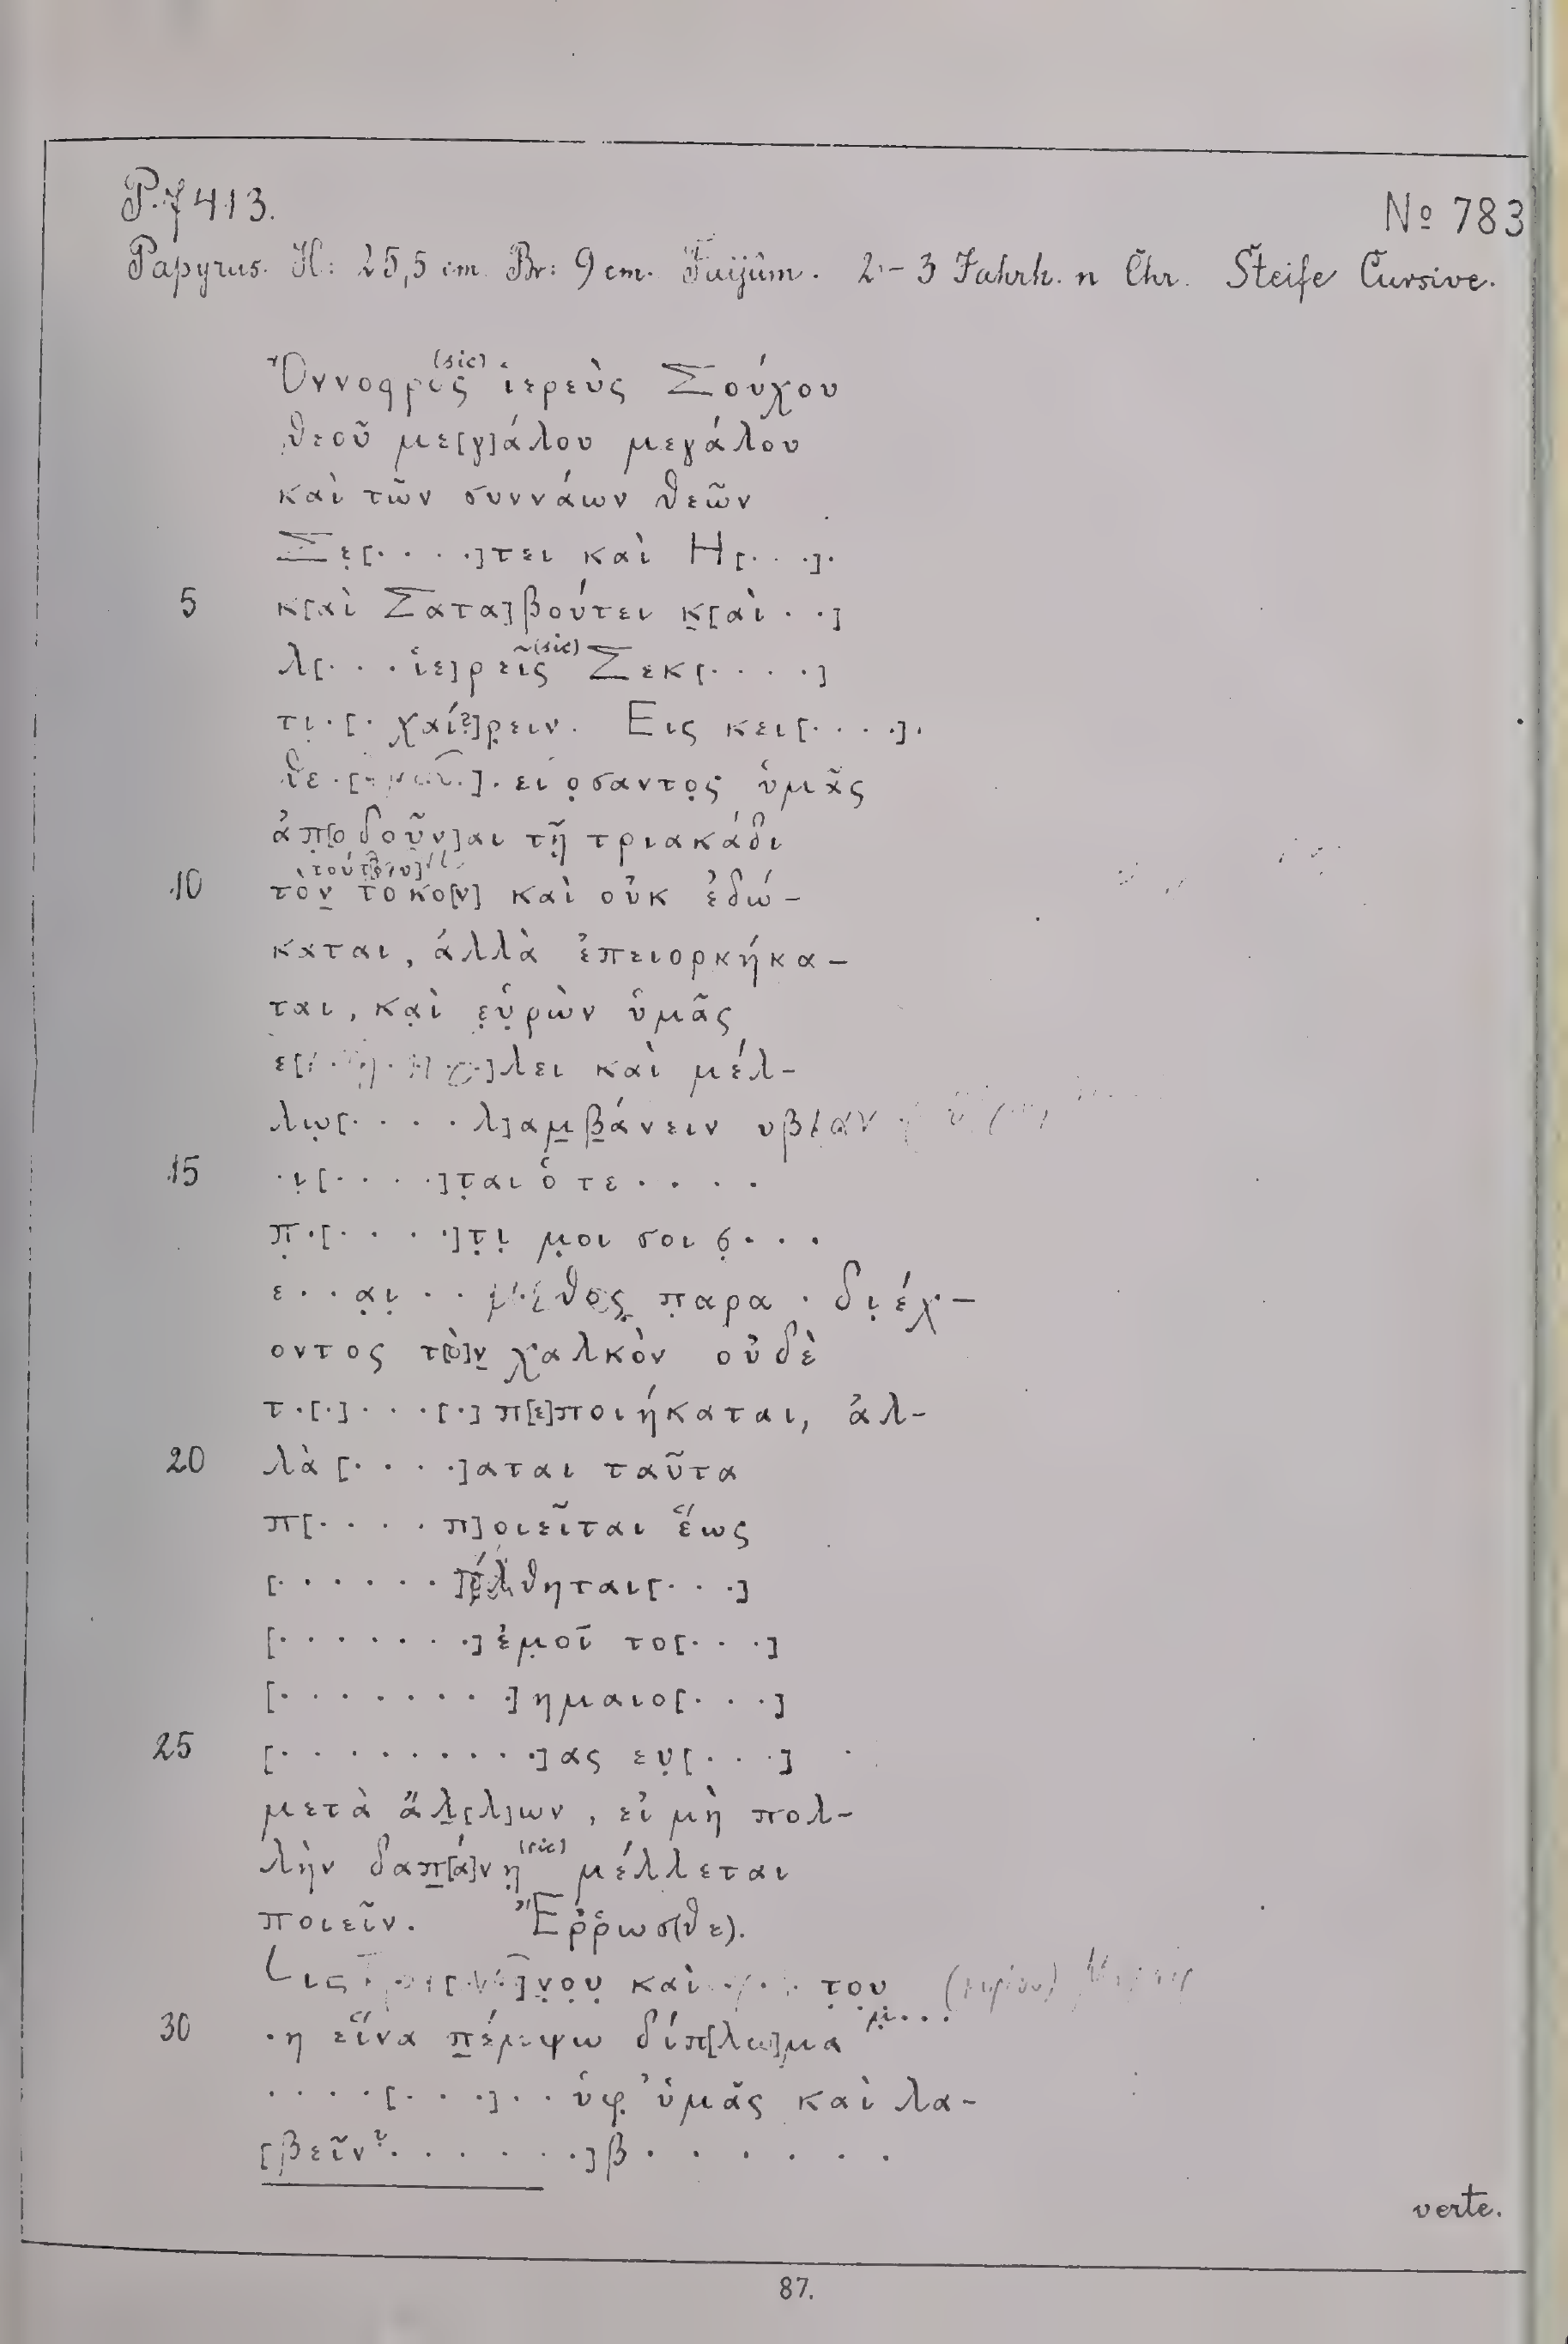 P. 7413.
№ 783
Papyrus. H: 25,5 cm. Br: 9 cm. Faijûm. 2-3 Jahrh. n Chr. Steife Cursive.
(sic)
Ὀννοφρος ἱερεὺς Σούχου
θεοῦ με[γ]άλου μεγάλου
καὶ τῶν συννάων θεῶν
Σε̣[· · · ·]τει καὶ Η[· · ·]·
5 κ[αὶ Σατα]βούτει κ̣[αὶ · ·]
(sic)
λ[· · · ἱε]ρεῖς Σεκ[· · · ·]
τι̣·[· χαί?]ρ̣ειν. Εις κει[· · · ·]·
]· ει ο̣σαντο̣ς ὑμᾶς
ἀπ̣[ο δοῦν]αι τῇ̣ τριακάδι
10 τὸν̣ τοκο[ν] καὶ οὐκ ἐδώ-
καται, ἀλλὰ ἐπειορκήκα-
ται, κα̣ὶ ε̣ὑ̣ρὼν ὑμᾶς
]λει καὶ μέλ-
λω̣[· · · · λ]αμ̣β̣άνειν υβιαν
15 ·ι̣[· · · ·]τ̣αι ὁ τε · · · ·
π̣·[· · · ·]τ̣ι̣ μ̣οι σοι ο̣· · ·
ε · · α̣ι̣ · · π̣αρα · δι̣έχ-
οντος τ[ὸ]ν̣ χαλκὸν οὐδὲ
τ·[·]· · ·[·] π[ε]ποιήκαται, ἀλ-
20 λὰ [· · · ·]αται ταῦτα
π[· · · · π]οιεῖται ἕως
[· · · · · · ]έλθηται[· · ·]
[· · · · · · ·] ἐμ̣οῖ το[· · ·]
[· · · · · · · ·] ημαιο[· · ·]
25 [· · · · · · · · ·] ας ευ̣[· · ·]
μετὰ ἄλ̣[λ]ων, εἰ μὴ πολ-
(sic)
λὴν δαπ̣[ά]νη̣ μέλλεται
ποιεῖν. Ἔρρωσ(θε).
]ν̣ο̣υ̣ καὶ το̣υ̣
μ̣· · ·
30 ·η εἵνα π̣έμψω δίπ[λω]μα
· · · ·[· · ·]· · ὑφ’ ὑμᾶς καὶ λα-
[βεῖν? · · · · · ·]β · · · · · ·
verte.
87.